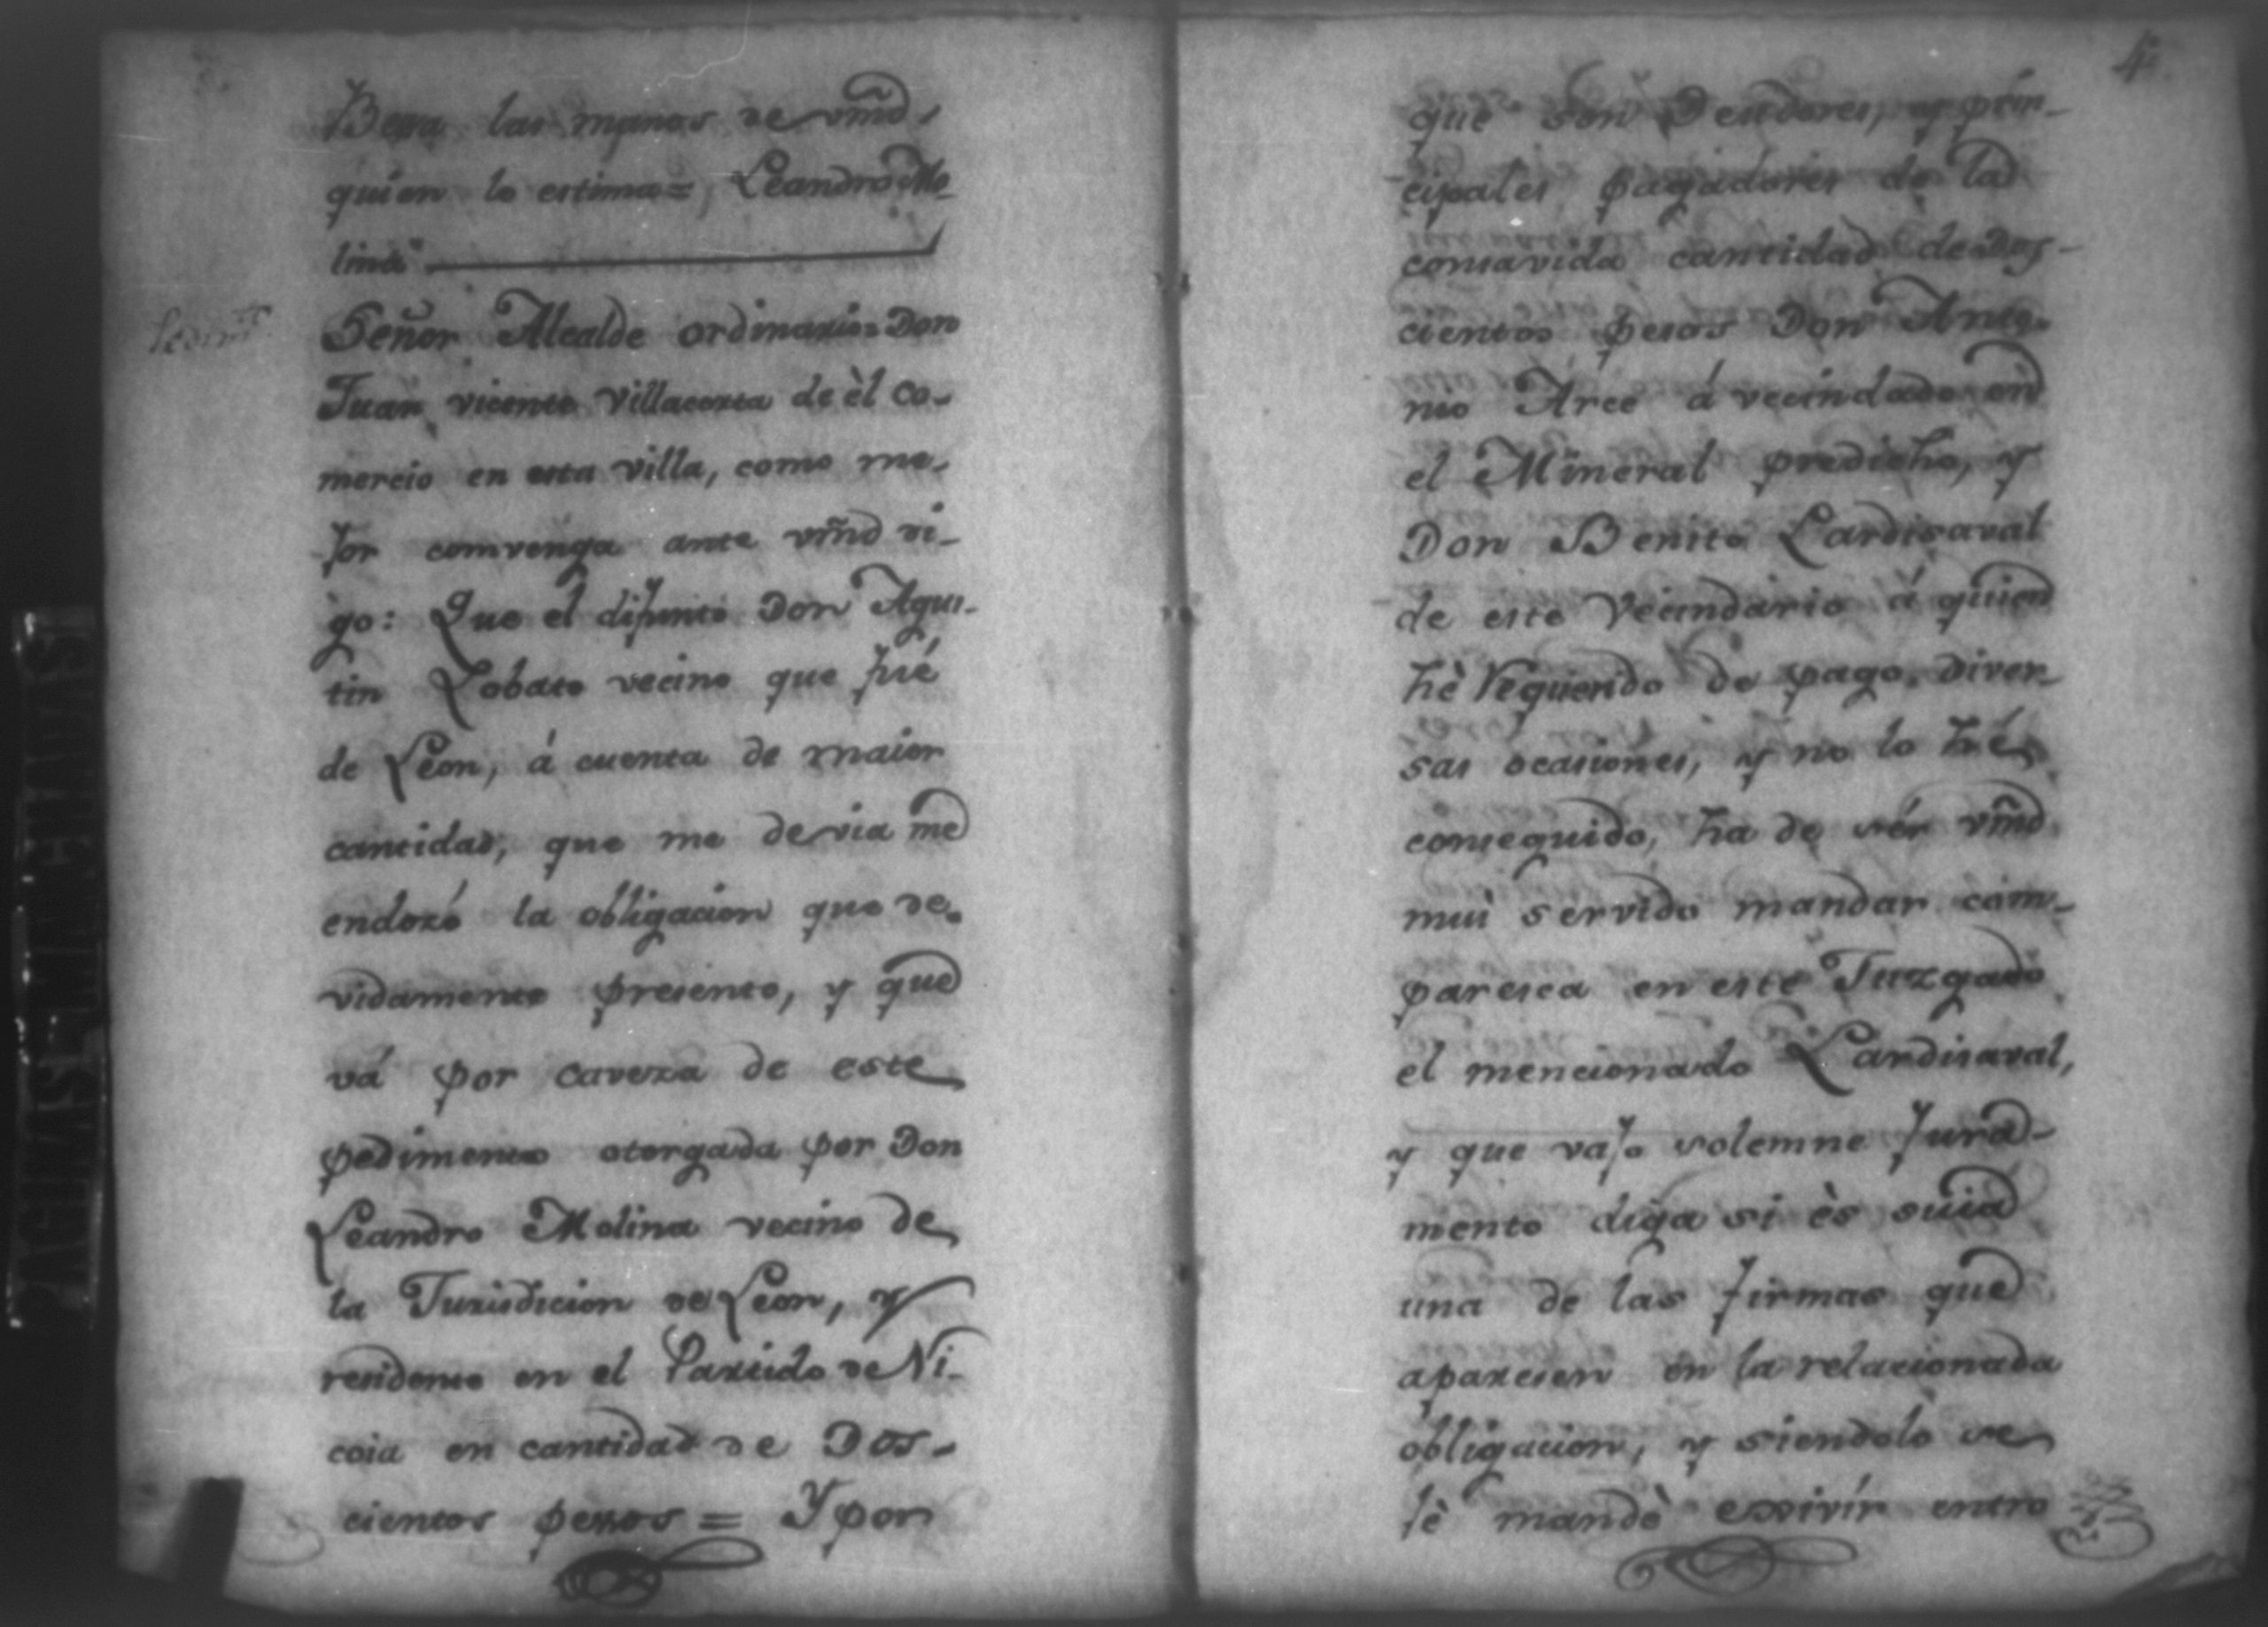 Besa las manos de vm̃d,
quien lo estima = Leandro Mo-
lina
Pedimto
Señor Alcalde ordinario = Don
Juan vicente Villacorta de èl co-
mercio en esta villa, como me-
jor comvenga ante vm̃d di-
go: Que el difunto Don Agus-
tin Lobato vecino que fué
de Leon, á cuenta de maior
cantidad, que me devia me
endozó la obligacion que de-
vidamente presento, y que
vá por caveza de este
pedimento otorgada por Don
Leandro Molina vecino de
la Jurisdicion de Leon, y
residente en el Partido de Ni-
coia en cantidad de Dos-
cientos pesos = Y por
4
que son Deudores, y prin-
cipales pagadores de la
consavida cantidad de Dos-
cientos pesos Don Anto-
nio Arce á vecindado en
el Mineral predicho, y
Don Benito Lardisaval
de este Vecindario á quien
hè requerido de pago, diver-
sas ocasiones, y no lo hé
conseguido, ha de sér vm̃d
mui servido mandar com-
paresca en este Juzgado
el mencionado Lardisaval,
y que vajo solemne Jura-
mento diga si ès suia
una de las firmas que
aparesen en la relacionada
obligacion, y siendolo se
lè mandè exsivír entro